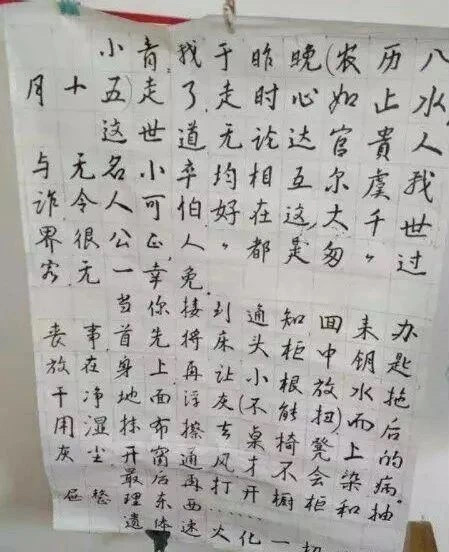 小青,我于昨晚(农历八
月十五)走了,走时心如止水,
这世道无论达官贵人
与无名小卒均相互尔虞我
诈,令人可怕,好在这大千世
界很公正,人都是匆匆过
客,无一幸免.
当你接到通知回来办
丧事首先将床头柜中钥匙
放在身上再让小根放水拖
干净地面洋灰(不能扭)而后
用湿抹布擦去桌椅凳上的
灰尘,开窗通风才不会染病。
最后再打开橱柜和抽
屉整理东西……
遗体速火化一切